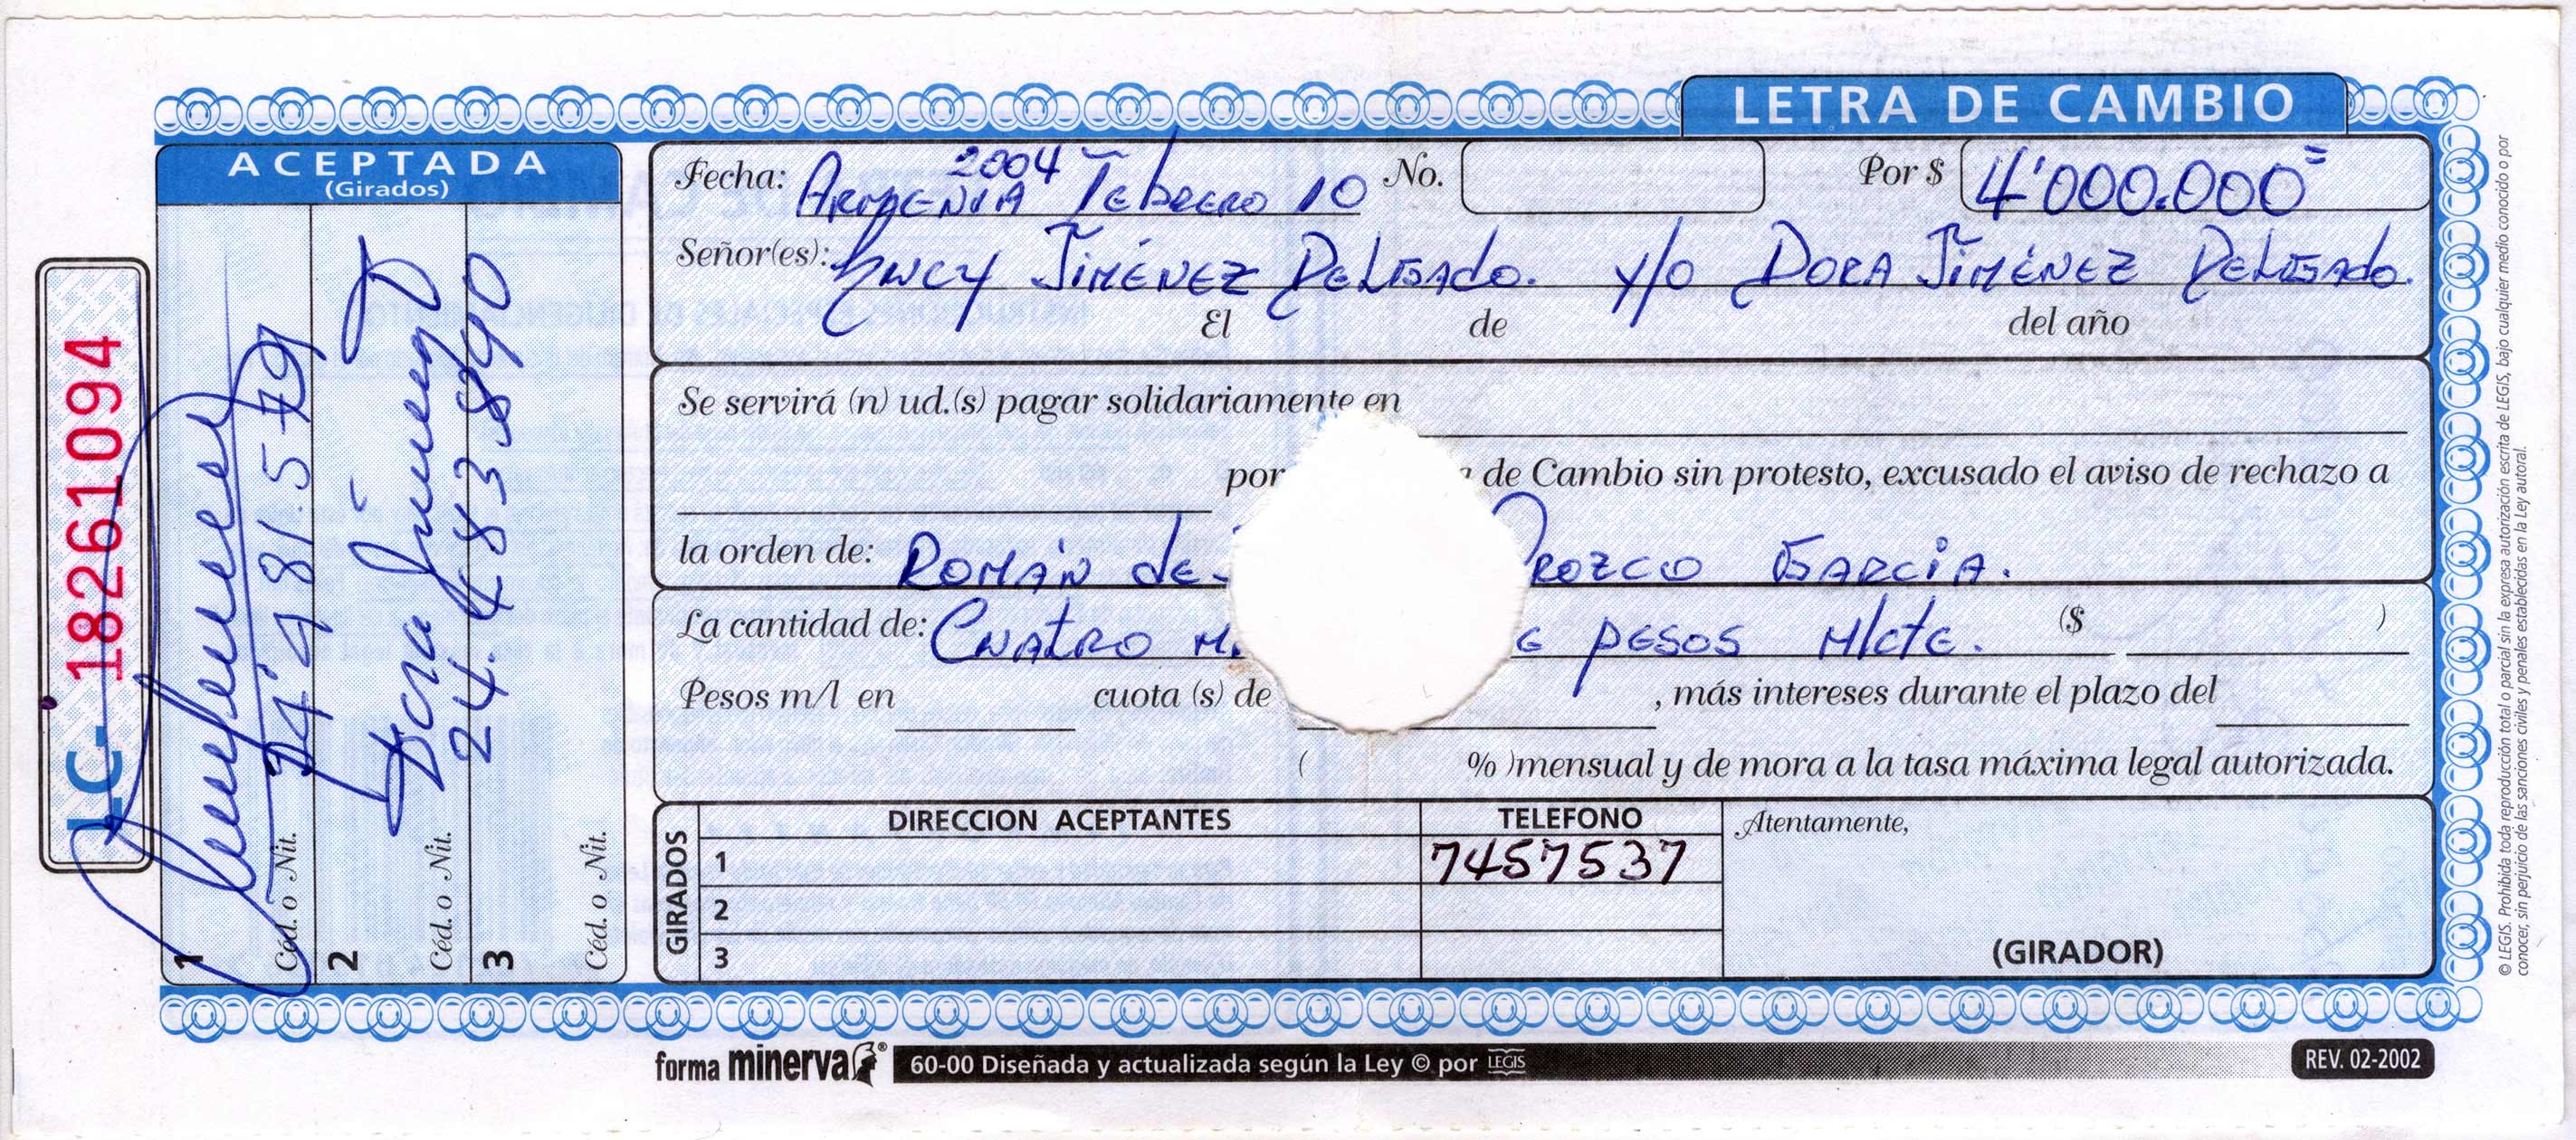 LETRA DE CAMBIO
ACEPTADA
(Girados)
Fecha: ARMENIA 2004 Febrero 10 No. Por $ 4'000.000=
Señor(es): Lucy JIMÉNEZ DELGADO. y/o DORA JIMÉNEZ DELGADO.
El de del año
Se servirá (n) ud.(s) pagar solidariamente en
por de Cambio sin protesto, excusado el aviso de rechazo a
la orden de: ROMÁN de OROZCO GARCIA.
La cantidad de: CUATRO PESOS M/cte. ($ )
Pesos m/l en cuota (s) de , más intereses durante el plazo del
( % )mensual y de mora a la tasa máxima legal autorizada.
DIRECCION ACEPTANTES TELEFONO Atentamente,
GIRADOS
1 7457537
2
3
(GIRADOR)
LC- 18261094
1
Céd. o Nit.
2 Dora Jimenez D
Céd. o Nit. 24.483.890
3
Céd. o Nit.
forma minerva® 60-00 Diseñada y actualizada según la Ley © por LEGIS REV. 02-2002
© LEGIS. Prohibida toda reproducción total o parcial sin la expresa autorización escrita de LEGIS, bajo cualquier medio conocido o por
conocer, sin perjuicio de las sanciones civiles y penales establecidas en la Ley autoral.